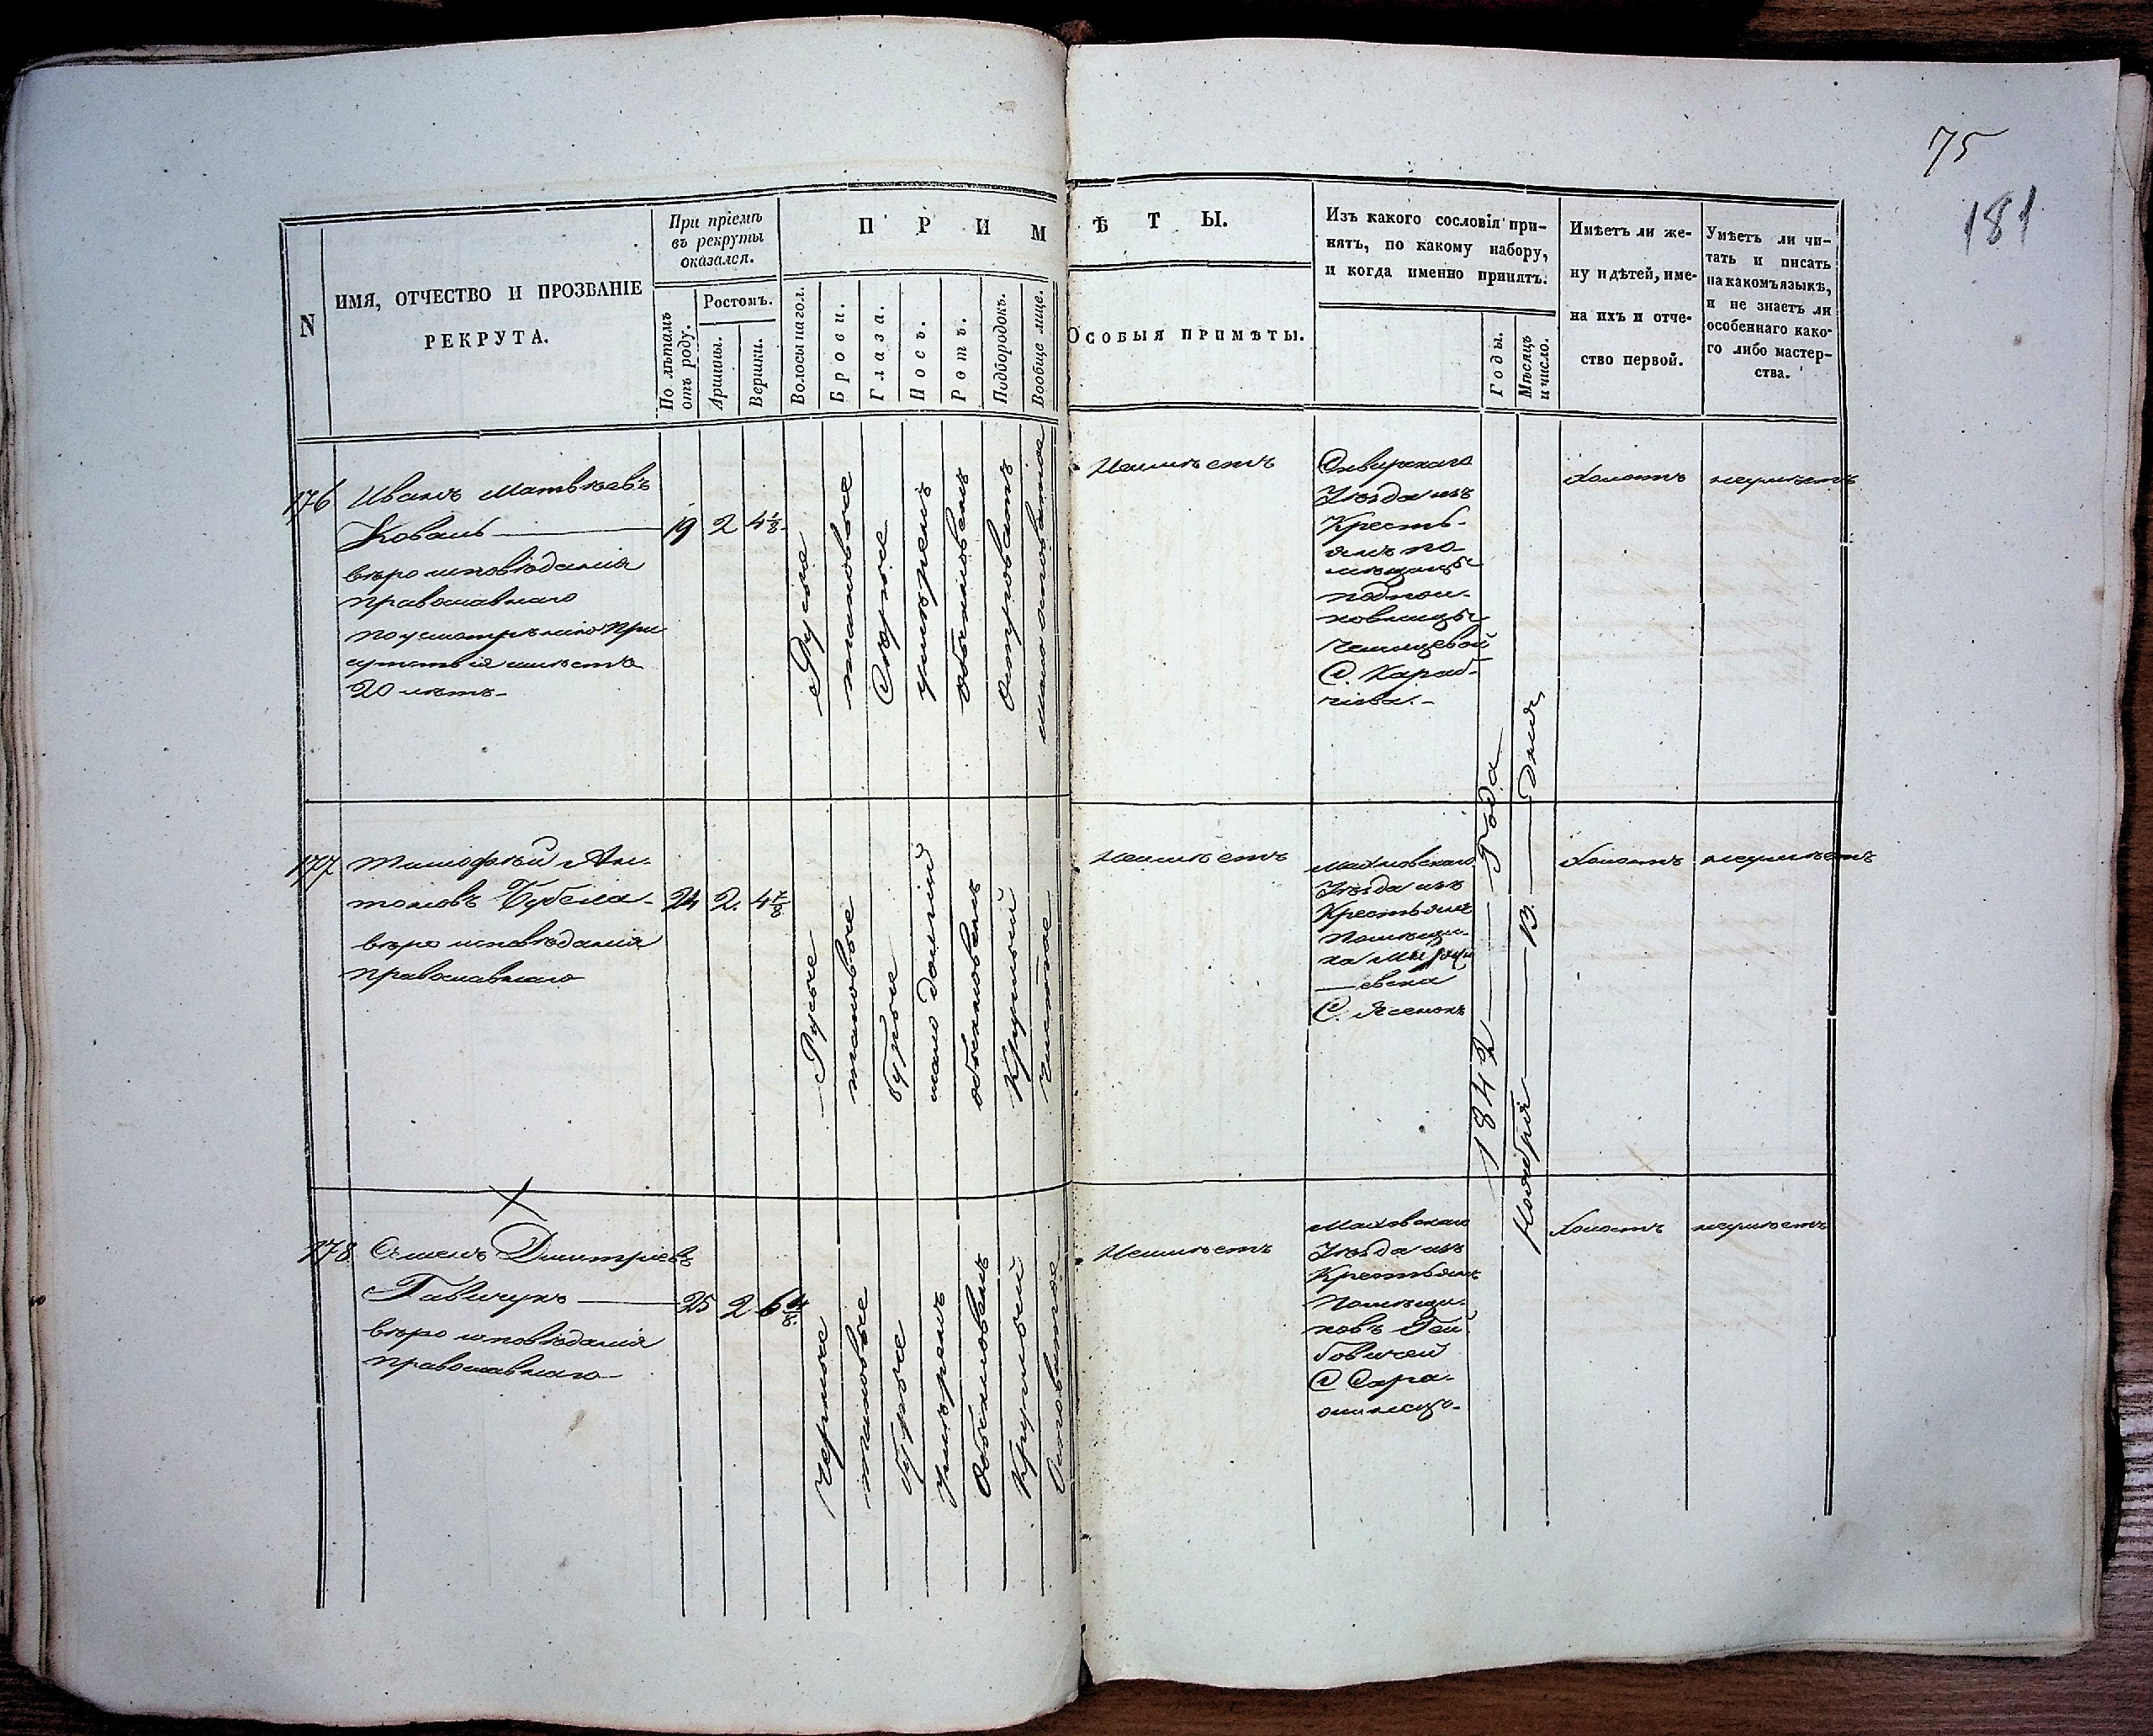 75
181
N
ИМЯ, ОТЧЕСТВО И ПРОЗВАНІЕ
РЕКРУТА.
При пріемѣ
въ рекруты
оказался.
По лѣтамъ
отъ роду.
Ростомъ.
Аршины.
Вершки.
П Р И М Ѣ Т Ы.
Волосы на гол.
Брови.
Глаза.
Носъ.
Ротъ.
Подбородокъ.
Вообще лице.
ОСОБЫЯ ПРИМѢТЫ.
Изъ какого сословія при-
нятъ, по какому набору,
и когда именно принятъ.
Годы.
Мѣсяцъ
и число.
Имѣетъ ли же-
ну и дѣтей, име-
на ихъ и отче-
ство первой.
Умѣетъ ли чи-
тать и писать
на какомъ языкѣ,
и не знаетъ ли
особеннаго како-
го либо мастер-
ства.
176
Иванъ Матвѣевъ
Коваль
вѣроисповѣданія
православнаго
по усмотрѣнію При
сутствія имѣетъ
20 лѣтъ
19
2
4 1/8
Русые
таковые
Сѣрые
умѣренъ
обыкновенъ
Островатъ
мало осповатое
Неимѣетъ
Сквирскаго
Уѣзда изъ
Кресть-
янъ по-
мѣщицы
подпол-
ковницы
С. Караб-
чіова.
холостъ
неумѣетъ
177
Тимофѣй Ан-
тоновъ Бубела
вѣро исповѣданія
православнаго
24
2.
4 7/8
Русые
таковые
бурые
мало долгій
обыкновенъ
Круглый
чистое
Неимѣетъ
Махновскаго
Уѣзда изъ
Крестьянъ
Помѣщи-
ка
С. Ясенокъ
1842 Года
Ноября 13 Дня
холостъ
неумѣетъ
178
Семенъ Дмитріевъ
вѣро исповѣданія
православнаго
25
2
6 4/8
Черные
таковые
бурые
Умѣренъ
Обыкновенъ
Круглый
Осповатое
Неимѣетъ
Уѣзда изъ
Крестьянъ
Помѣщи-
ковъ
С
холостъ
неумѣетъ